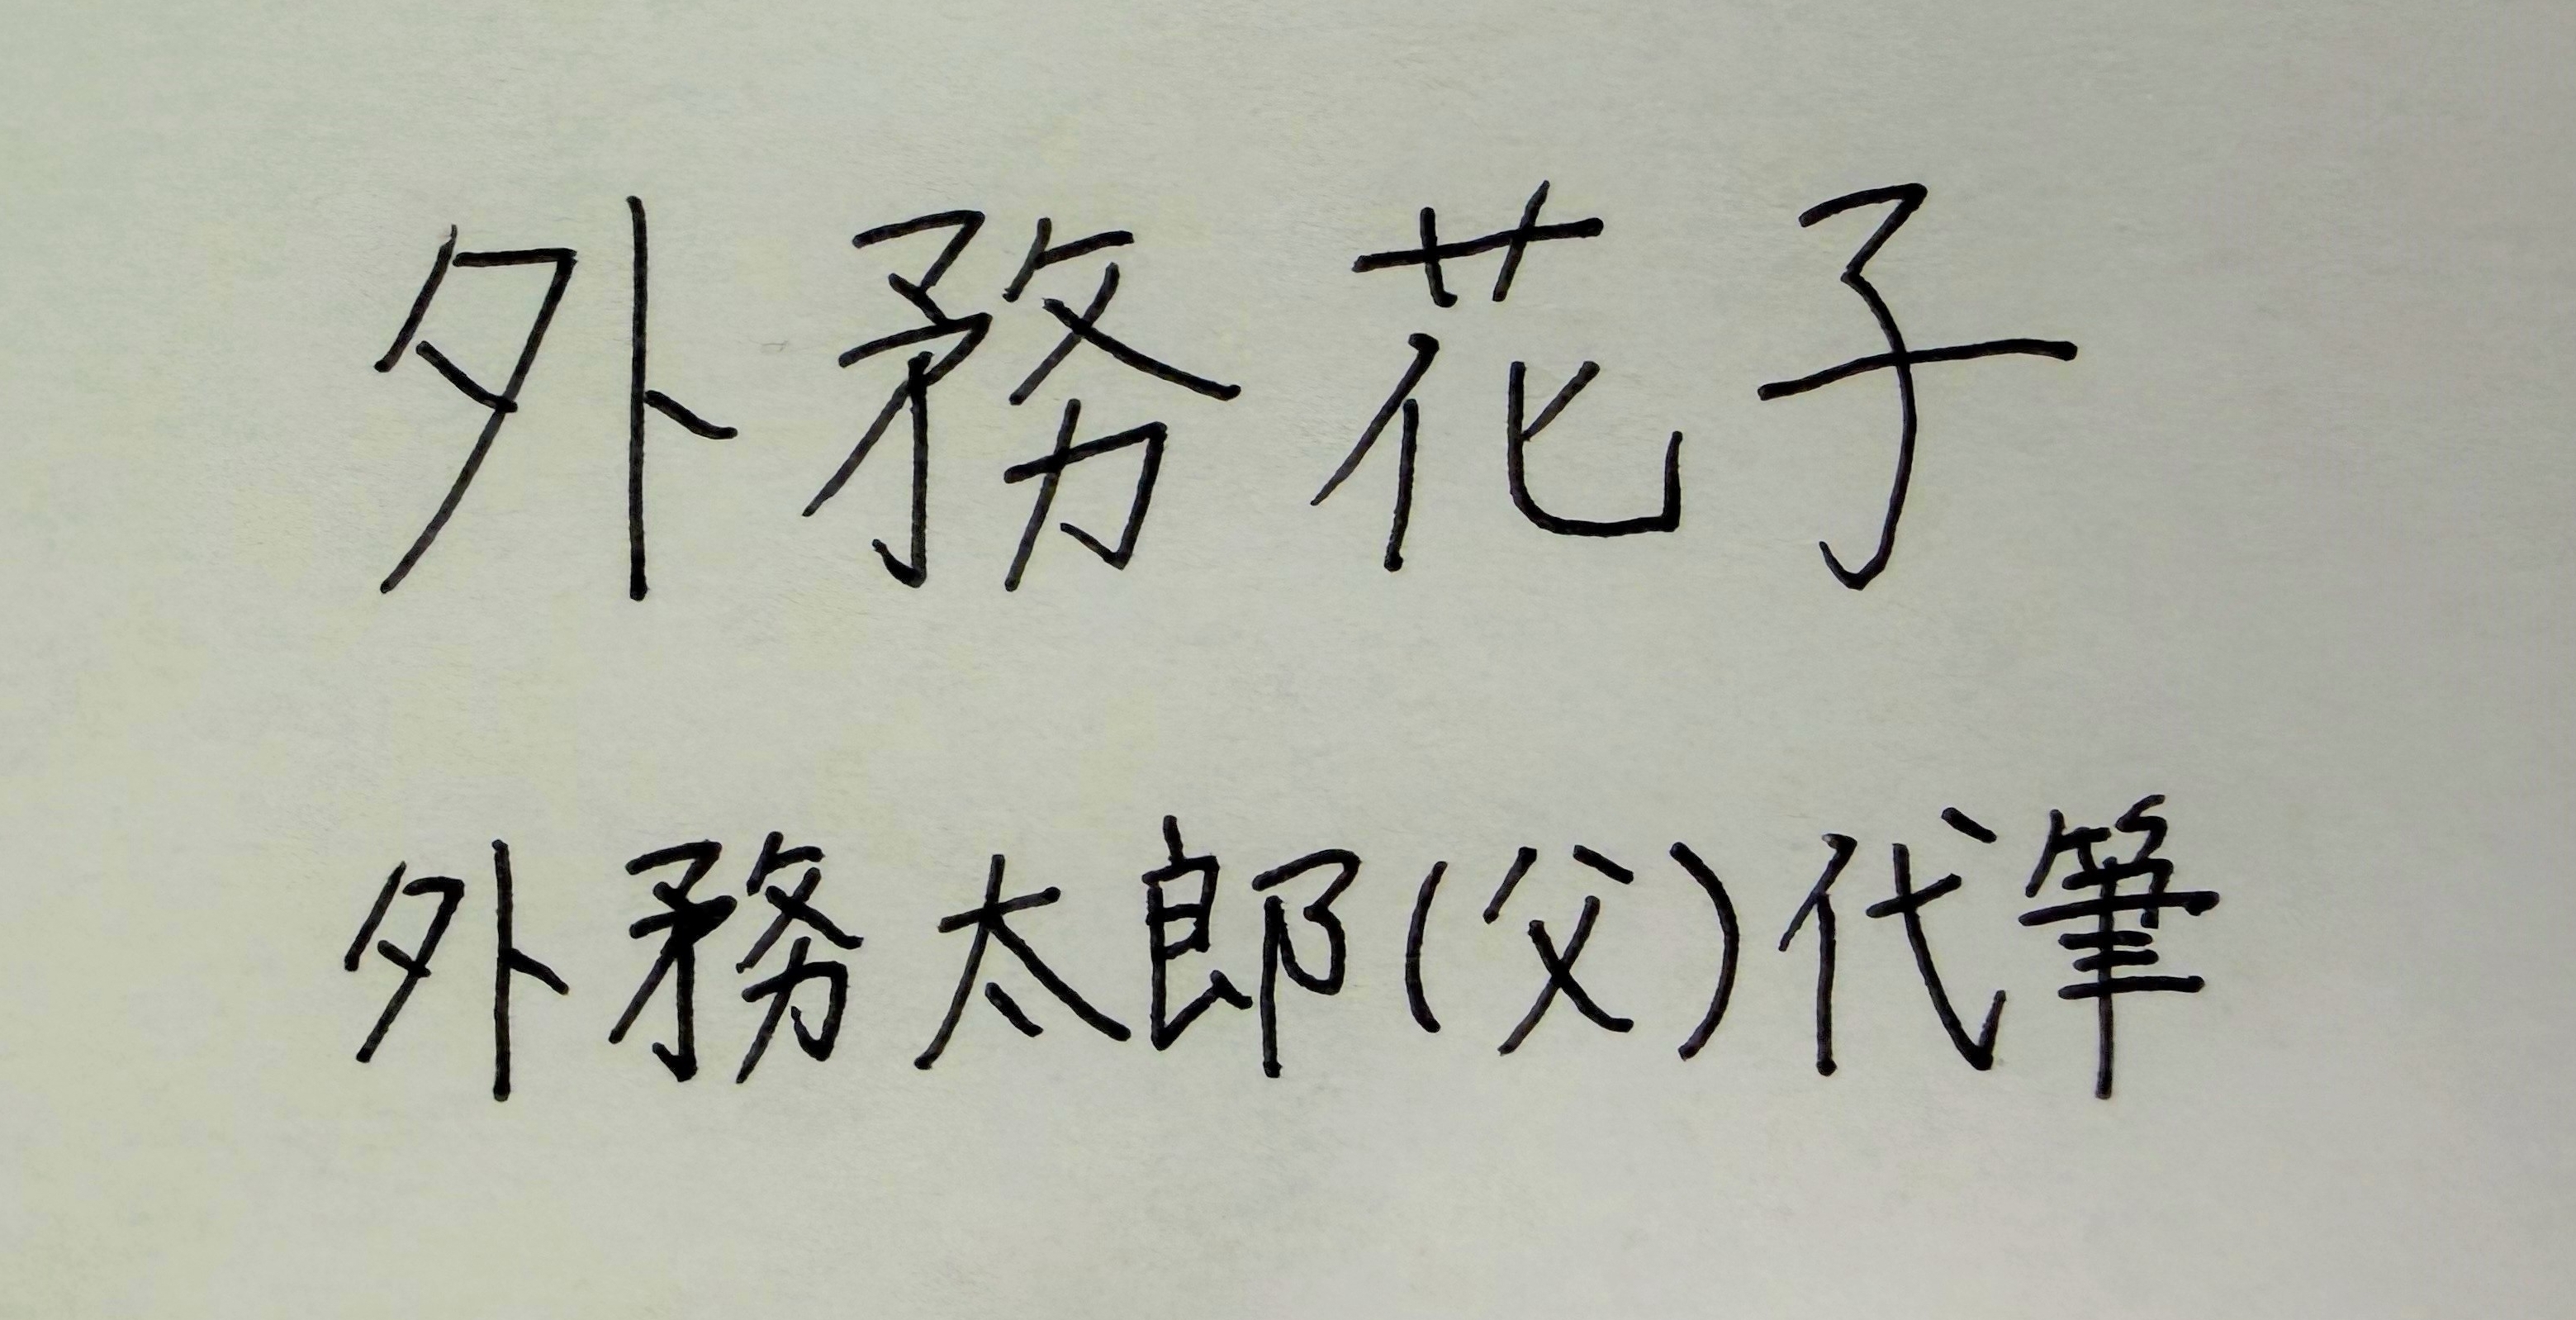 外務花子
外務太郎(父)代筆